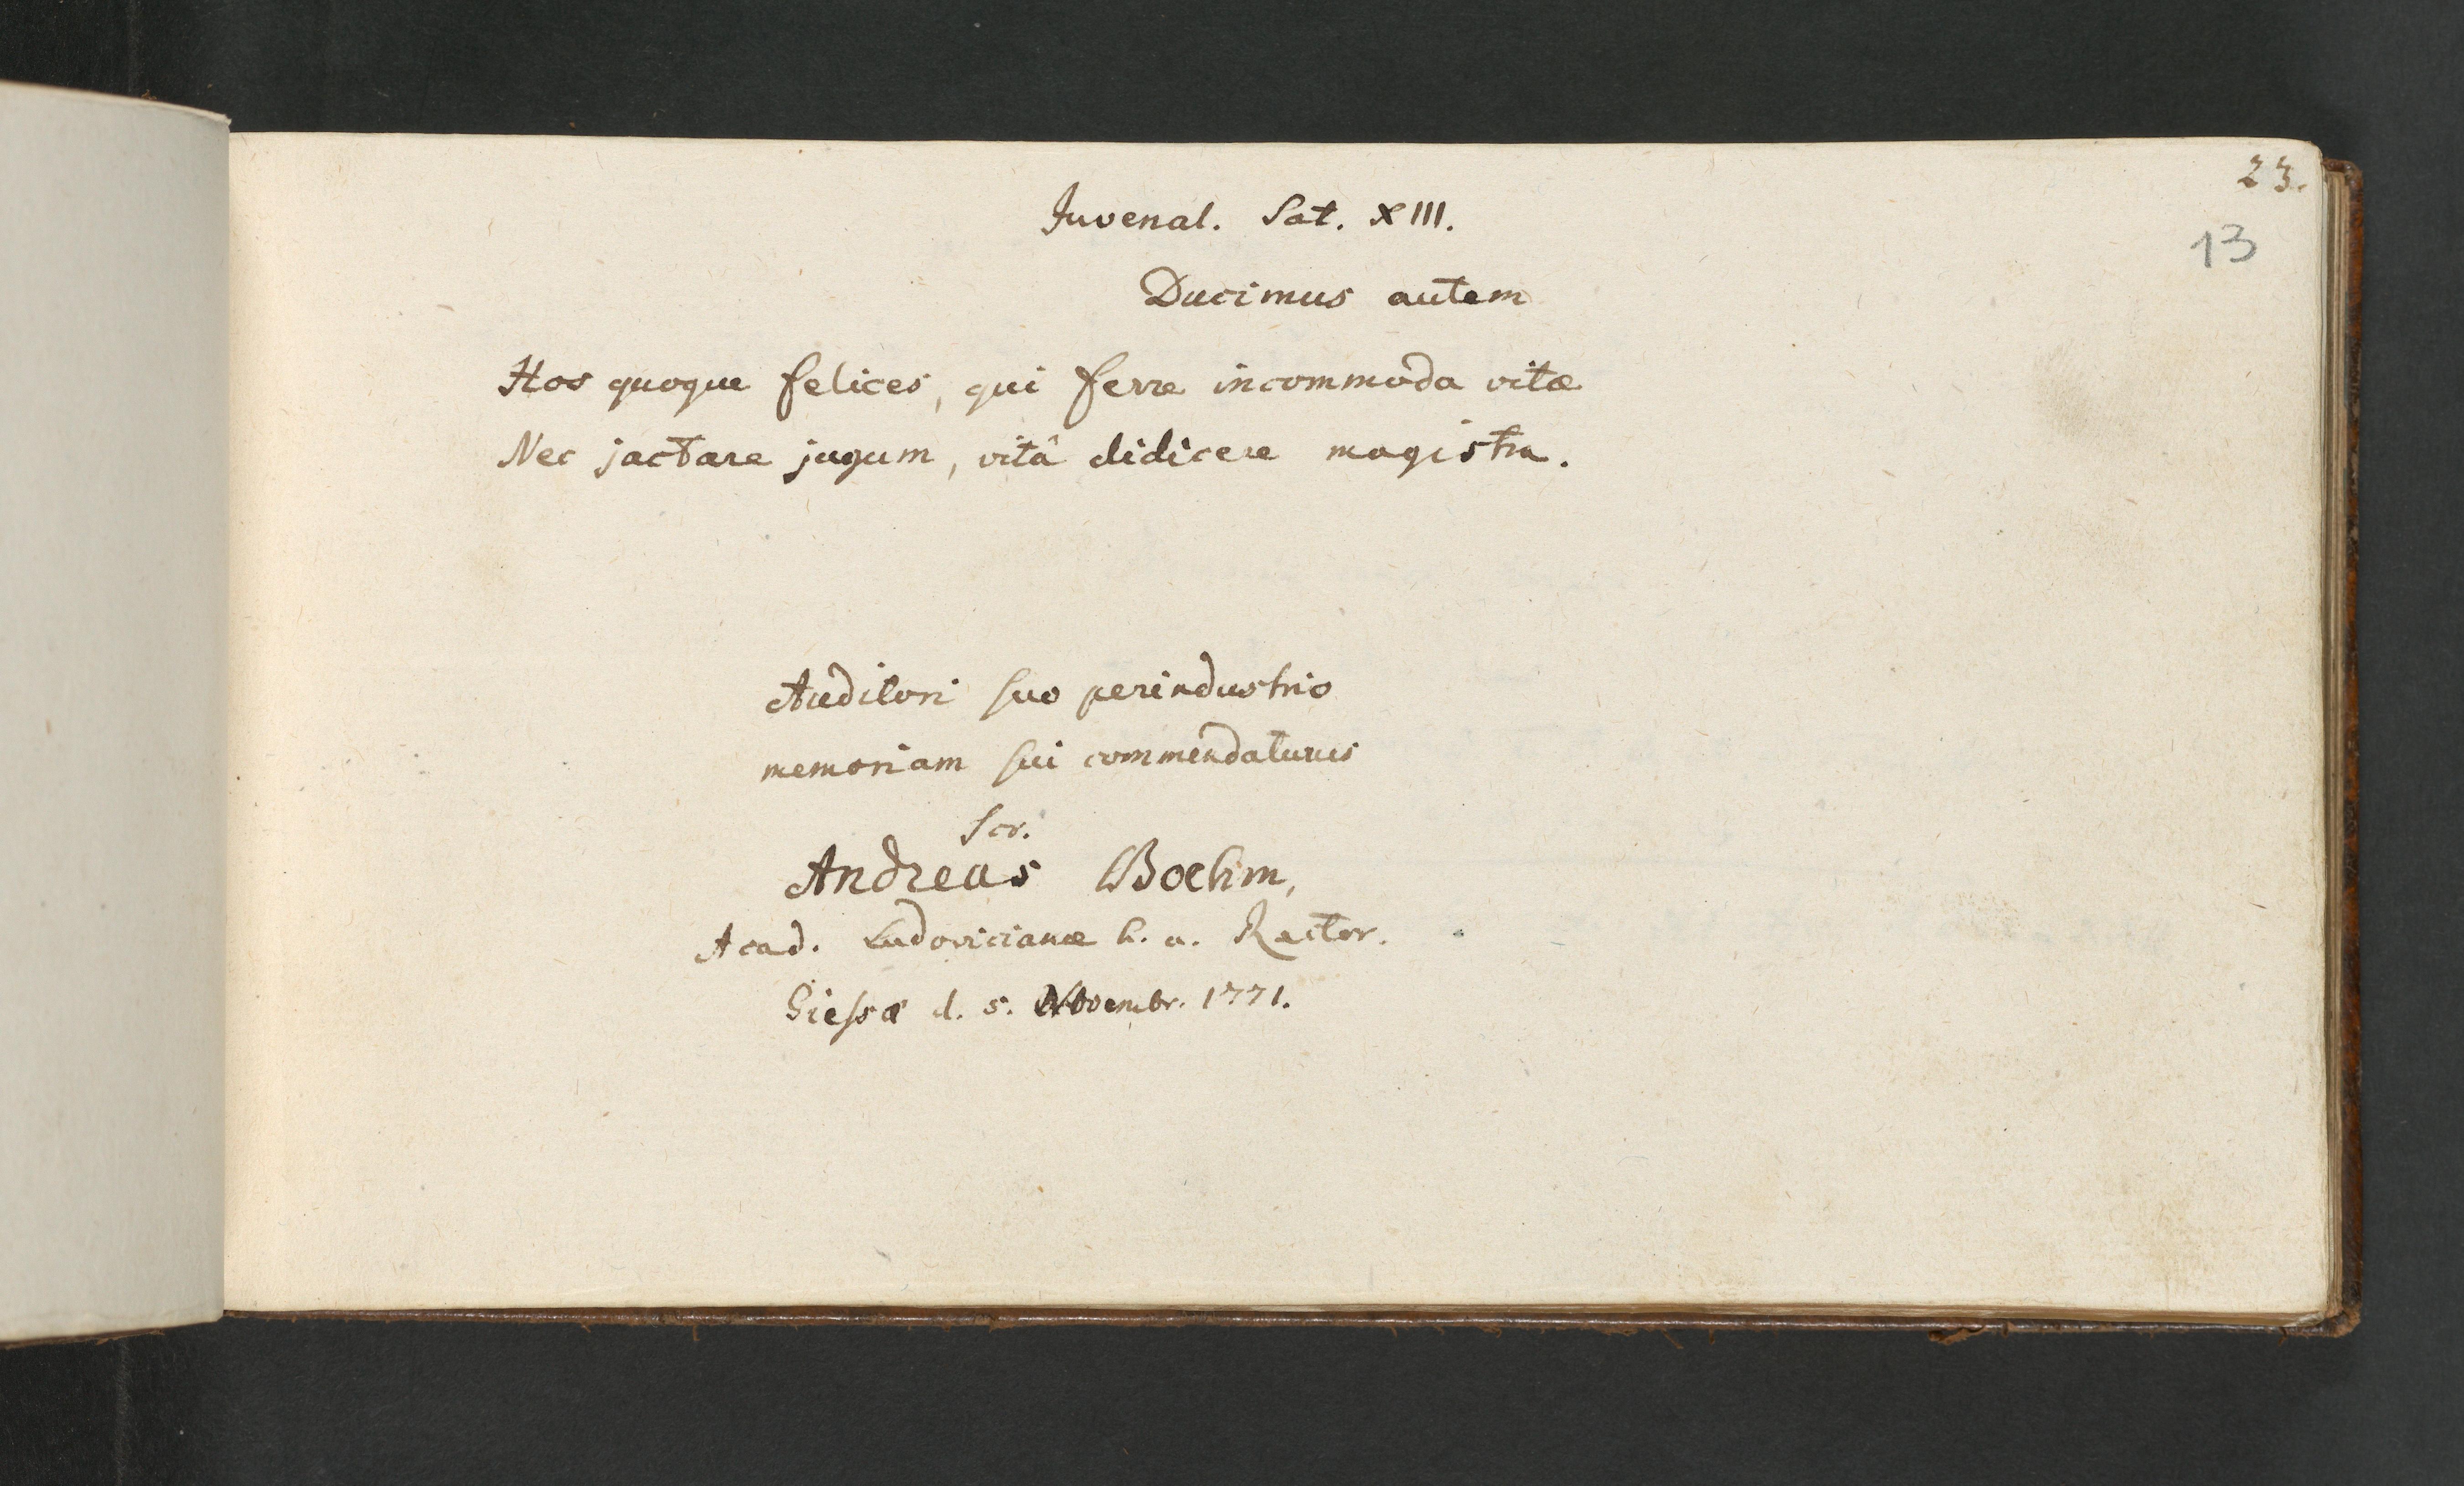 23.
13
Juvenal. Sat. XIII.
Ducimus autem
Hos quoque felices, qui ferre incommoda vitæ
Nec jactare jugum, vitâ didicere magistra.
Auditori suo perindustrio
memoriam sui commendaturus
scr.
Andreas Boehm,
Acad. Ludovicianæ h. a. Rector.
Giessæ d. 5. Novembr. 1771.